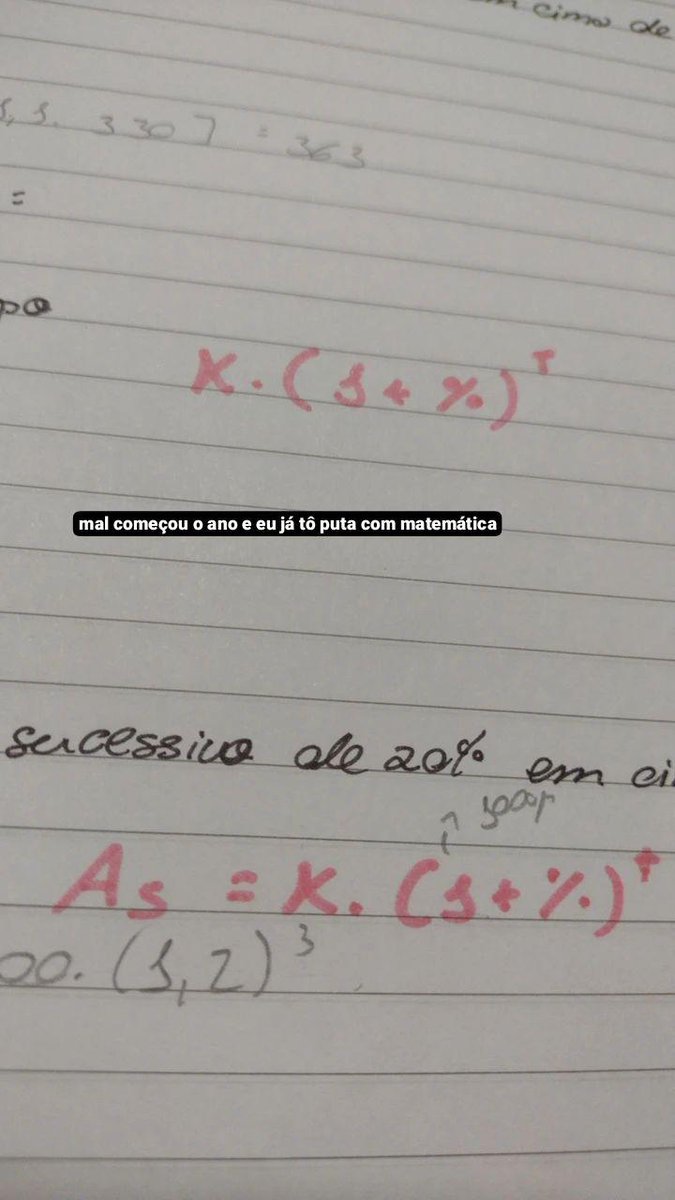 em cima de
1,1. 330 7 = 363
=
po
K. (1 + %)ᵀ
mal começou o ano e eu já tô puta com matemática
sucessivo de 20% em ci
↑ 100%
As = K. (1 + %)ᵗ
00. (1,2)³